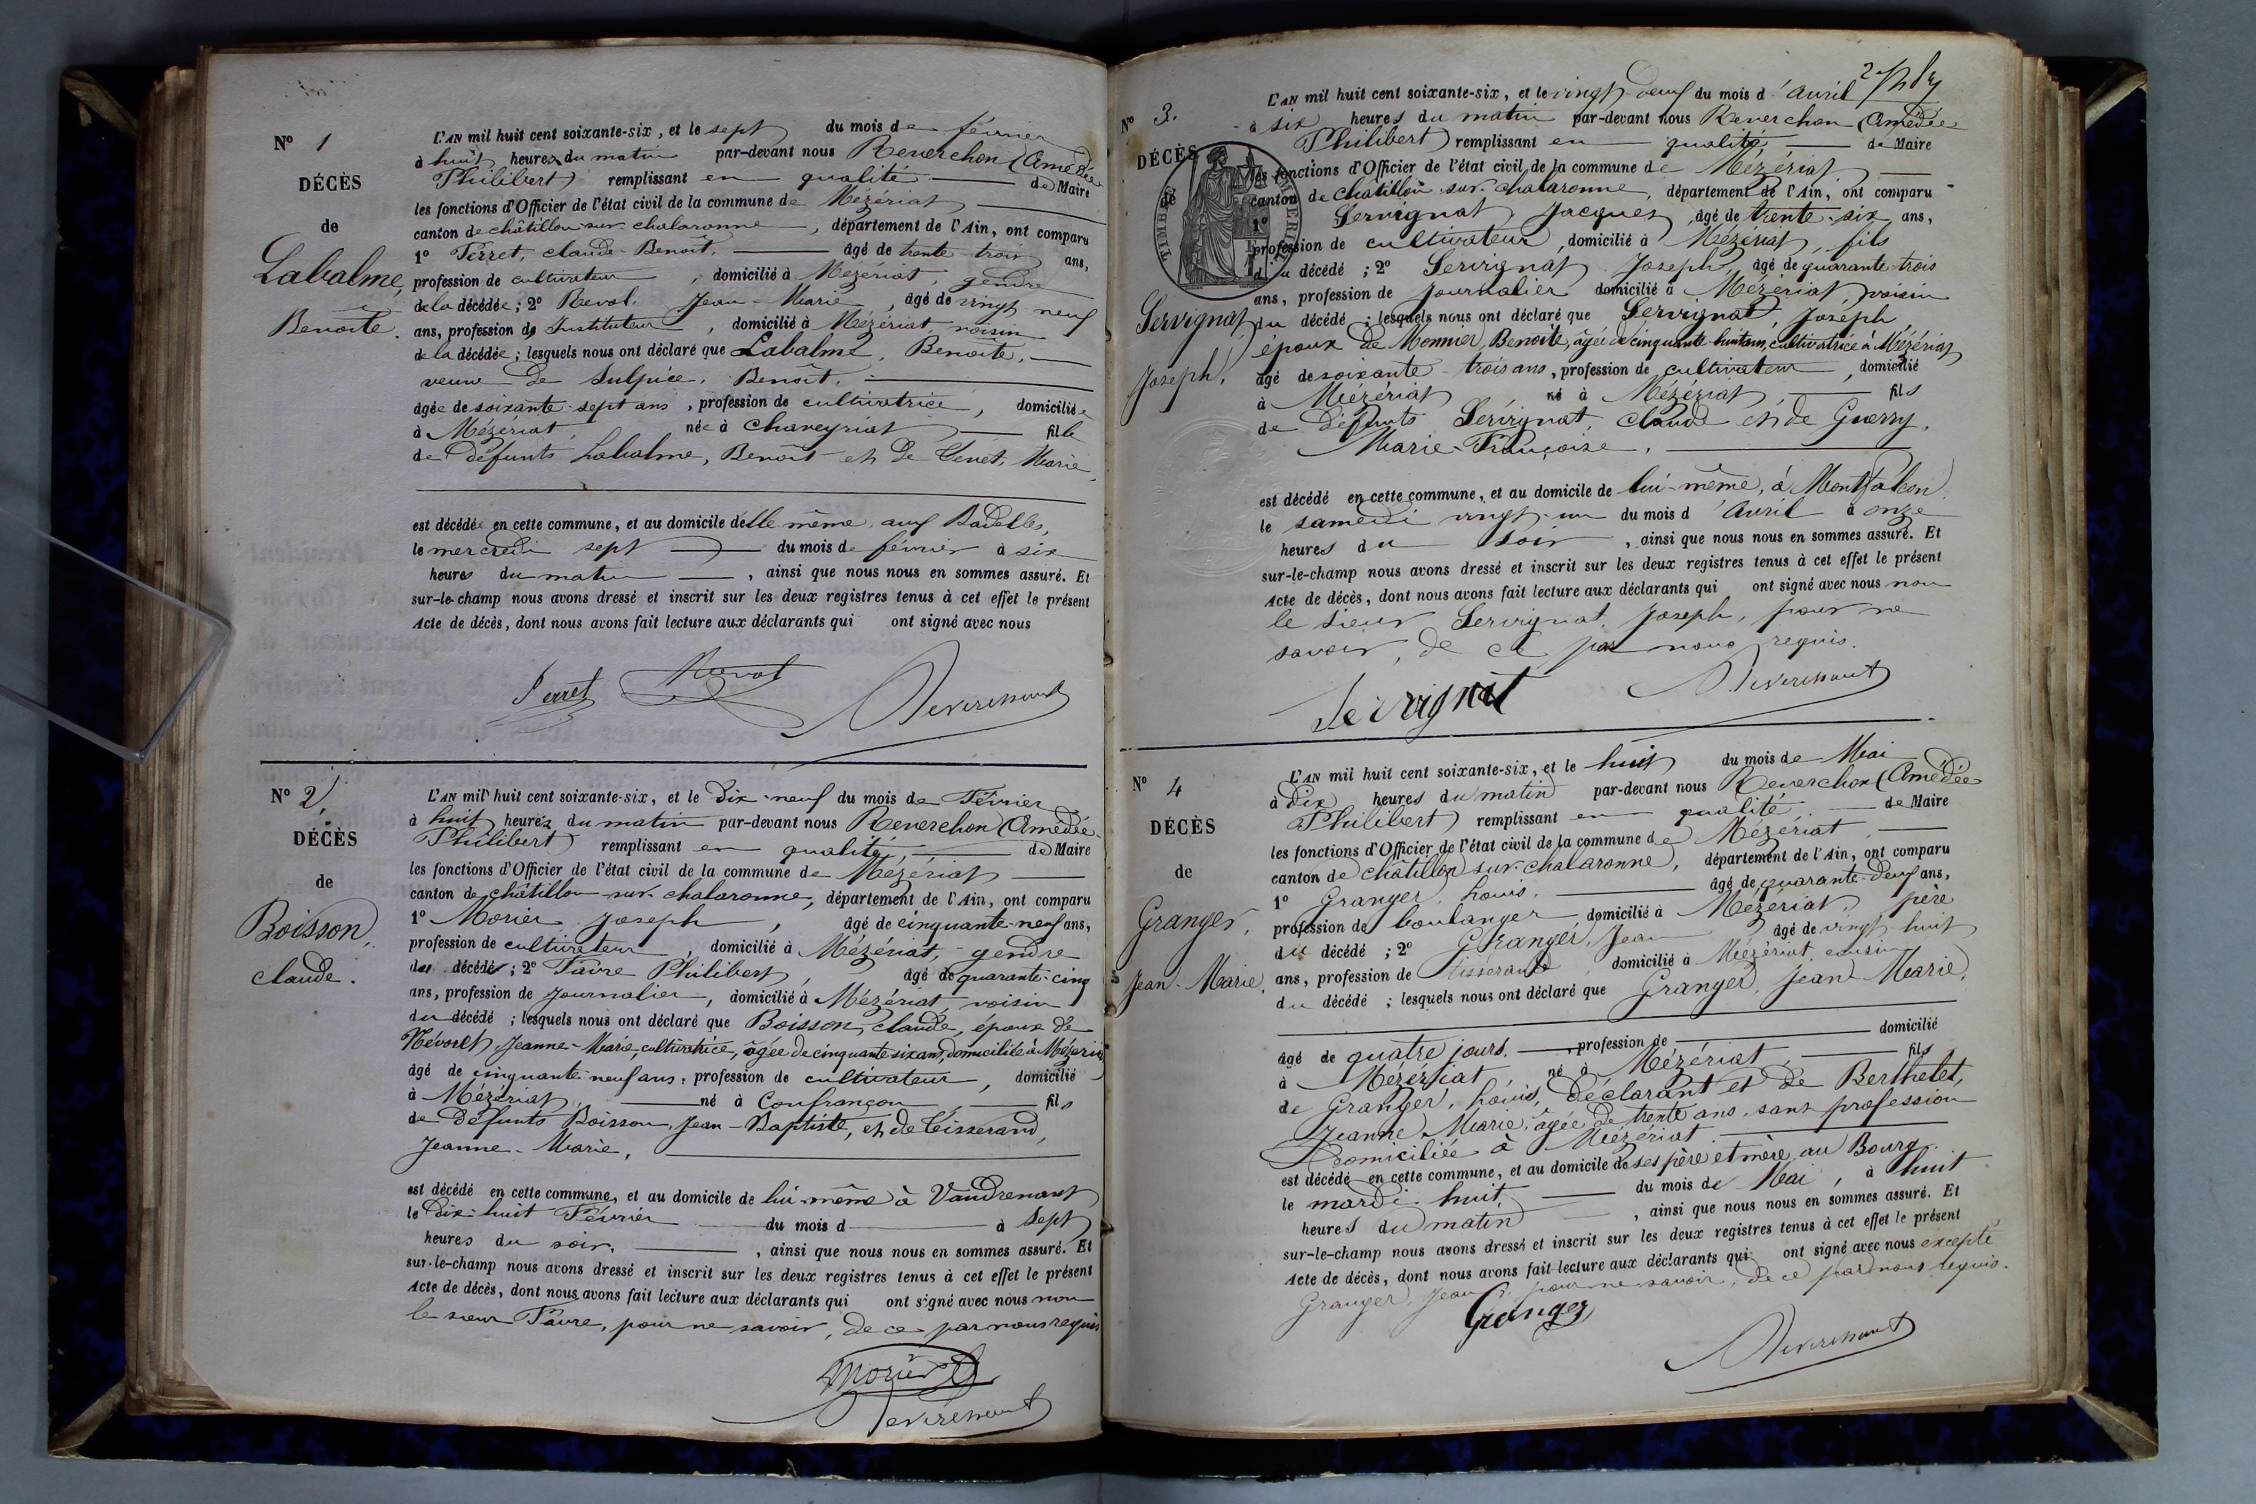 N° 1
DÉCÈS
de
Labalme,
Benoîte.
L'AN mil huit cent soixante-six, et le sept du mois de février
à huit heures du matin par-devant nous Reverchon (Amédée
Philibert) remplissant en qualité de Maire
les fonctions d'Officier de l'état civil de la commune de Mézériat
canton de châtillon sur chalaronne, département de l'Ain, ont comparu
1° Ferret, claude-Benoît, âgé de trente trois ans,
profession de cultivateur, domicilié à Mézériat, gendre
de la décédée; 2° Revol, Jean-Marie, âgé de vingt neuf
ans, profession de Instituteur, domicilié à Mézériat, voisin
de la décédée; lesquels nous ont déclaré que Labalme, Benoîte,
veuve de Sulpice, Benoît,
âgée de soixante-sept ans, profession de cultivatrice, domiciliée
à Mézériat, née à Chaveyriat fille
de défunts Labalme, Benoît et de Venet, Marie,
est décédée en cette commune, et au domicile d'elle même, aux
le mercredi sept du mois de février à six
heures du matin, ainsi que nous nous en sommes assuré. Et
sur-le-champ nous avons dressé et inscrit sur les deux registres tenus à cet effet le présent
Acte de décès, dont nous avons fait lecture aux déclarants qui ont signé avec nous
Ferret Revol Reverchon
N° 2
DÉCÈS
de
Boisson,
claude.
L'AN mil huit cent soixante-six, et le Dix-neuf du mois de Février
à huit heures du matin par-devant nous Reverchon (Amédée-
Philibert) remplissant en qualité, de Maire
les fonctions d'Officier de l'état civil de la commune de Mézériat
canton de châtillon-sur-chalaronne, département de l'Ain, ont comparu
1° Morier Joseph, âgé de cinquante-neuf ans,
profession de cultivateur, domicilié à Mézériat, gendre
du décédé; 2° Favre Philibert, âgé de quarante-cinq
ans, profession de Journalier, domicilié à Mézériat, voisin
du décédé; lesquels nous ont déclaré que Boisson, claude, époux de
Névoret, Jeanne-Marie, cultivatrice, âgée de cinquante six ans, domiciliée à Mézériat
âgé de cinquante-neuf ans, profession de cultivateur, domicilié
à Mézériat, né à Confrançon, fils
de défunts Boisson, Jean-Baptiste, et de Tisserand,
Jeanne-Marie,
est décédé en cette commune, et au domicile de lui-même à Vaudrenant
le Dix-huit Février du mois d à Sept
heures du soir, ainsi que nous nous en sommes assuré. Et
sur-le-champ nous avons dressé et inscrit sur les deux registres tenus à cet effet le présent
Acte de décès, dont nous avons fait lecture aux déclarants qui ont signé avec nous non
le sieur Favre, pour ne savoir, de ce par nous requis
Morier
Reverchon
N° 3.
DÉCÈS
de
TIMBRE IMPÉRIAL
Servignat,
Joseph.
L'AN mil huit cent soixante-six, et le vingt-deux du mois d'Avril
à six heures du matin par-devant nous Reverchon (Amédée
Philibert) remplissant en qualité de Maire
les fonctions d'Officier de l'état civil de la commune de Mézériat
canton de châtillon-sur-chalaronne, département de l'Ain, ont comparu
1° Servignat Jacques, âgé de trente-six ans,
profession de cultivateur, domicilié à Mézériat, fils
du décédé; 2° Servignat Joseph, âgé de quarante-trois
ans, profession de Journalier domicilié à Mézériat, voisin
du décédé; lesquels nous ont déclaré que Servignat, Joseph
époux de Monnier, Benoîte, âgée de cinquante-huit ans, cultivatrice à Mézériat
âgé de soixante-trois ans, profession de cultivateur, domicilié
à Mézériat né à Mézériat, fils
de défunts Servignat, claude et de Guerry,
Marie-Françoise,
est décédé en cette commune, et au domicile de lui-même, à Montfalcon,
le samedi vingt-un du mois d'Avril à onze
heures du soir, ainsi que nous nous en sommes assuré. Et
sur-le-champ nous avons dressé et inscrit sur les deux registres tenus à cet effet le présent
Acte de décès, dont nous avons fait lecture aux déclarants qui ont signé avec nous non
le sieur Servignat, Joseph, pour ne
savoir, de ce par nous requis.
Servignat Reverchon
N° 4
DÉCÈS
de
Granger,
Jean-Marie.
L'AN mil huit cent soixante-six, et le huit du mois de Mai
à dix heures du matin par-devant nous Reverchon (Amédée
Philibert) remplissant en qualité de Maire
les fonctions d'Officier de l'état civil de la commune de Mézériat
canton de châtillon sur-chalaronne, département de l'Ain, ont comparu
1° Granger, Louis, âgé de quarante-deux ans,
profession de boulanger domicilié à Mézériat, père
du décédé; 2° Granger, Jean âgé de vingt-huit
ans, profession de tisserand, domicilié à Mézériat, cousin
du décédé; lesquels nous ont déclaré que Granger, Jean Marie,
âgé de quatre jours, profession de domicilié
à Mézériat né à Mézériat, fils
de Granger, Louis, déclarant et de Berthelet,
Jeanne Marie, âgée de trente ans, sans profession
Domiciliée à Mézériat
est décédé en cette commune, et au domicile de ses père et mère au Bourg
le mardi huit du mois de Mai, à huit
heures du matin, ainsi que nous nous en sommes assuré. Et
sur-le-champ nous avons dressé et inscrit sur les deux registres tenus à cet effet le présent
Acte de décès, dont nous avons fait lecture aux déclarants qui ont signé avec nous excepté
Granger, Jean pour ne savoir, de ce par nous requis.
Granger
Reverchon